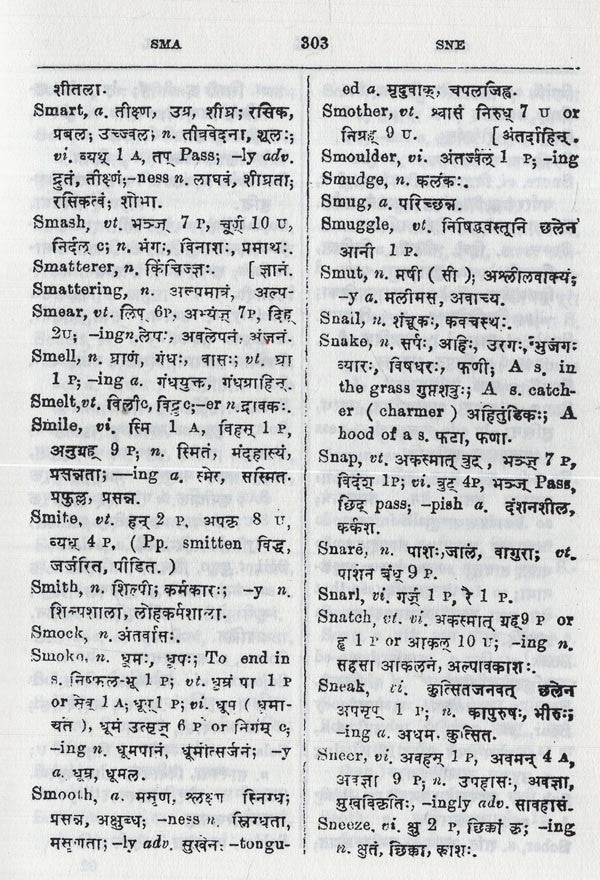 SMA 303 SNE
शीतला.
Smart, a. तीक्ष्ण, उग्र, शीघ्र; रसिक,
प्रबल; उज्ज्वल; n. तीव्रवेदना, शूलः;
vi. व्यथ् 1 A, तप् Pass; –ly adv.
द्रुतं, तीक्ष्णं;–ness n. लाघवं, शीघ्रता;
रसिकत्वं; शोभा.
Smash, vt. भञ्ज् 7 P, चूर्ण् 10 U,
निर्दल् c; n. भंगः, विनाशः, प्रमाथः.
Smatterer, n. किंचिज्ज्ञः. [ ज्ञानं.
Smattering, n. अल्पमात्रं, अल्प-
Smear, vt. लिप् 6P, अभ्यंज् 7P, दिह्
2U; –ing n. लेपः, अवलेपनं, अंजनं.
Smell, n. घ्राणं, गंधः, वासः; vt. घ्रा
1 P; –ing a. गंधयुक्त, गंधग्राहिन्.
Smelt, vt. विली c, विद्रु c;–er n. द्रावकः.
Smile, vi. स्मि 1 A, विहस् 1 P,
अनुग्रह् 9 P; n. स्मितं, मंदहास्यं,
प्रसन्नता; —ing a. स्मेर, सस्मित.
प्रफुल्ल, प्रसन्न.
Smite, vt. हन् 2 P, अपकृ 8 U,
व्यध् 4 P, ( Pp. smitten विद्ध,
जर्जरित, पीडित. )
Smith, n. शिल्पी; कर्मकारः; –y n.
शिल्पशाला, लोहकर्मशाला.
Smock, n. अंतर्वासः.
Smoke, n. धूमः, धूपः; To end in
s. निष्फल-भू 1 P; vt. धूम्रं पा 1 P
or सेव् 1 A; धूप् 1 P; vi. धूप ( धूमा-
यते ), धूमं उत्सृज् 6 P or निर्गम् c;
–ing n. धूमपानं, धूमोत्सर्जनं; –y
a. धूम्र, धूमल.
Smooth, a. मसृण, श्लक्ष्ण स्निग्ध;
प्रसन्न, अक्षुब्ध; –ness n. स्निग्धता,
मसृणता; –ly adv. सुखेन; –tongu-
ed a. मृदुवाक्, चपलजिह्व.
Smother, vt. श्वासं निरुध् 7 U or
निग्रह् 9 U. [ अंतर्दाहिन्.
Smoulder, vi. अंतर्ज्वल् 1 P; –ing
Smudge, n. कलंकः.
Smug, a. परिच्छन्न.
Smuggle, vt. निषिद्धवस्तूनि छलेन
आनी 1 P.
Smut, n. मषी ( सी ); अश्लीलवाक्यं;
–y a. मलीमस, अवाच्य.
Snail, n. शंबूकः, कवचस्थः.
Snake, n. सर्पः, अहिः, उरगः, भुजंगः
व्यारः, विषधरः, फणी; A s. in
the grass गुप्तशत्रुः; A s. catch-
er ( charmer ) अहितुंडिकः; A
hood of a s. फटा, फणा.
Snap, vt. अकस्मात् त्रुट् , भञ्ज् 7 P,
विदंश् 1P; vi. त्रुट् 4P, भञ्ज् Pass,
छिद् pass; –pish a. दंशनशील,
कर्कश.
Snare, n. पाशः, जालं, वागुरा; vt.
पाशेन बंध् 9 P.
Snarl, vi. गर्ज् 1 P, रे 1 P.
Snatch, vt. vi. अकस्मात् ग्रह् 9 P or
हृ 1 P or आकल् 10 U; –ing n.
सहसा आकलनं, अल्पावकाशः.
Sneak, vi. कुत्सितजनवत् छलेन
अपसृप् 1 P; n. कापुरुषः, भीरुः;
–ing a. अधम. कुत्सित.
Sneer, vi. अवहस् 1 P, अवमन् 4 A,
अवज्ञा 9 P; n. उपहासः, अवज्ञा,
मुखविकृतिः, –ingly adv. सावहासं.
Sneeze, vi. क्षु 2 P, छिक्कां कृ; –ing
n. क्षुतं, छिक्का, काशः.